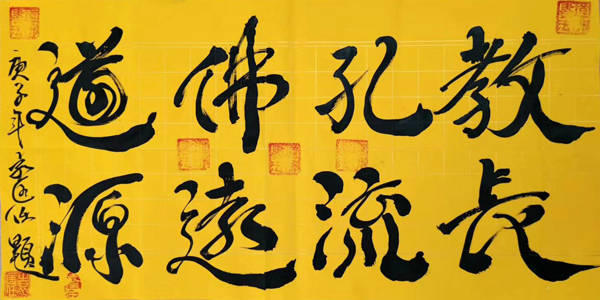 道佛孔教
源遠流長
庚子年 題